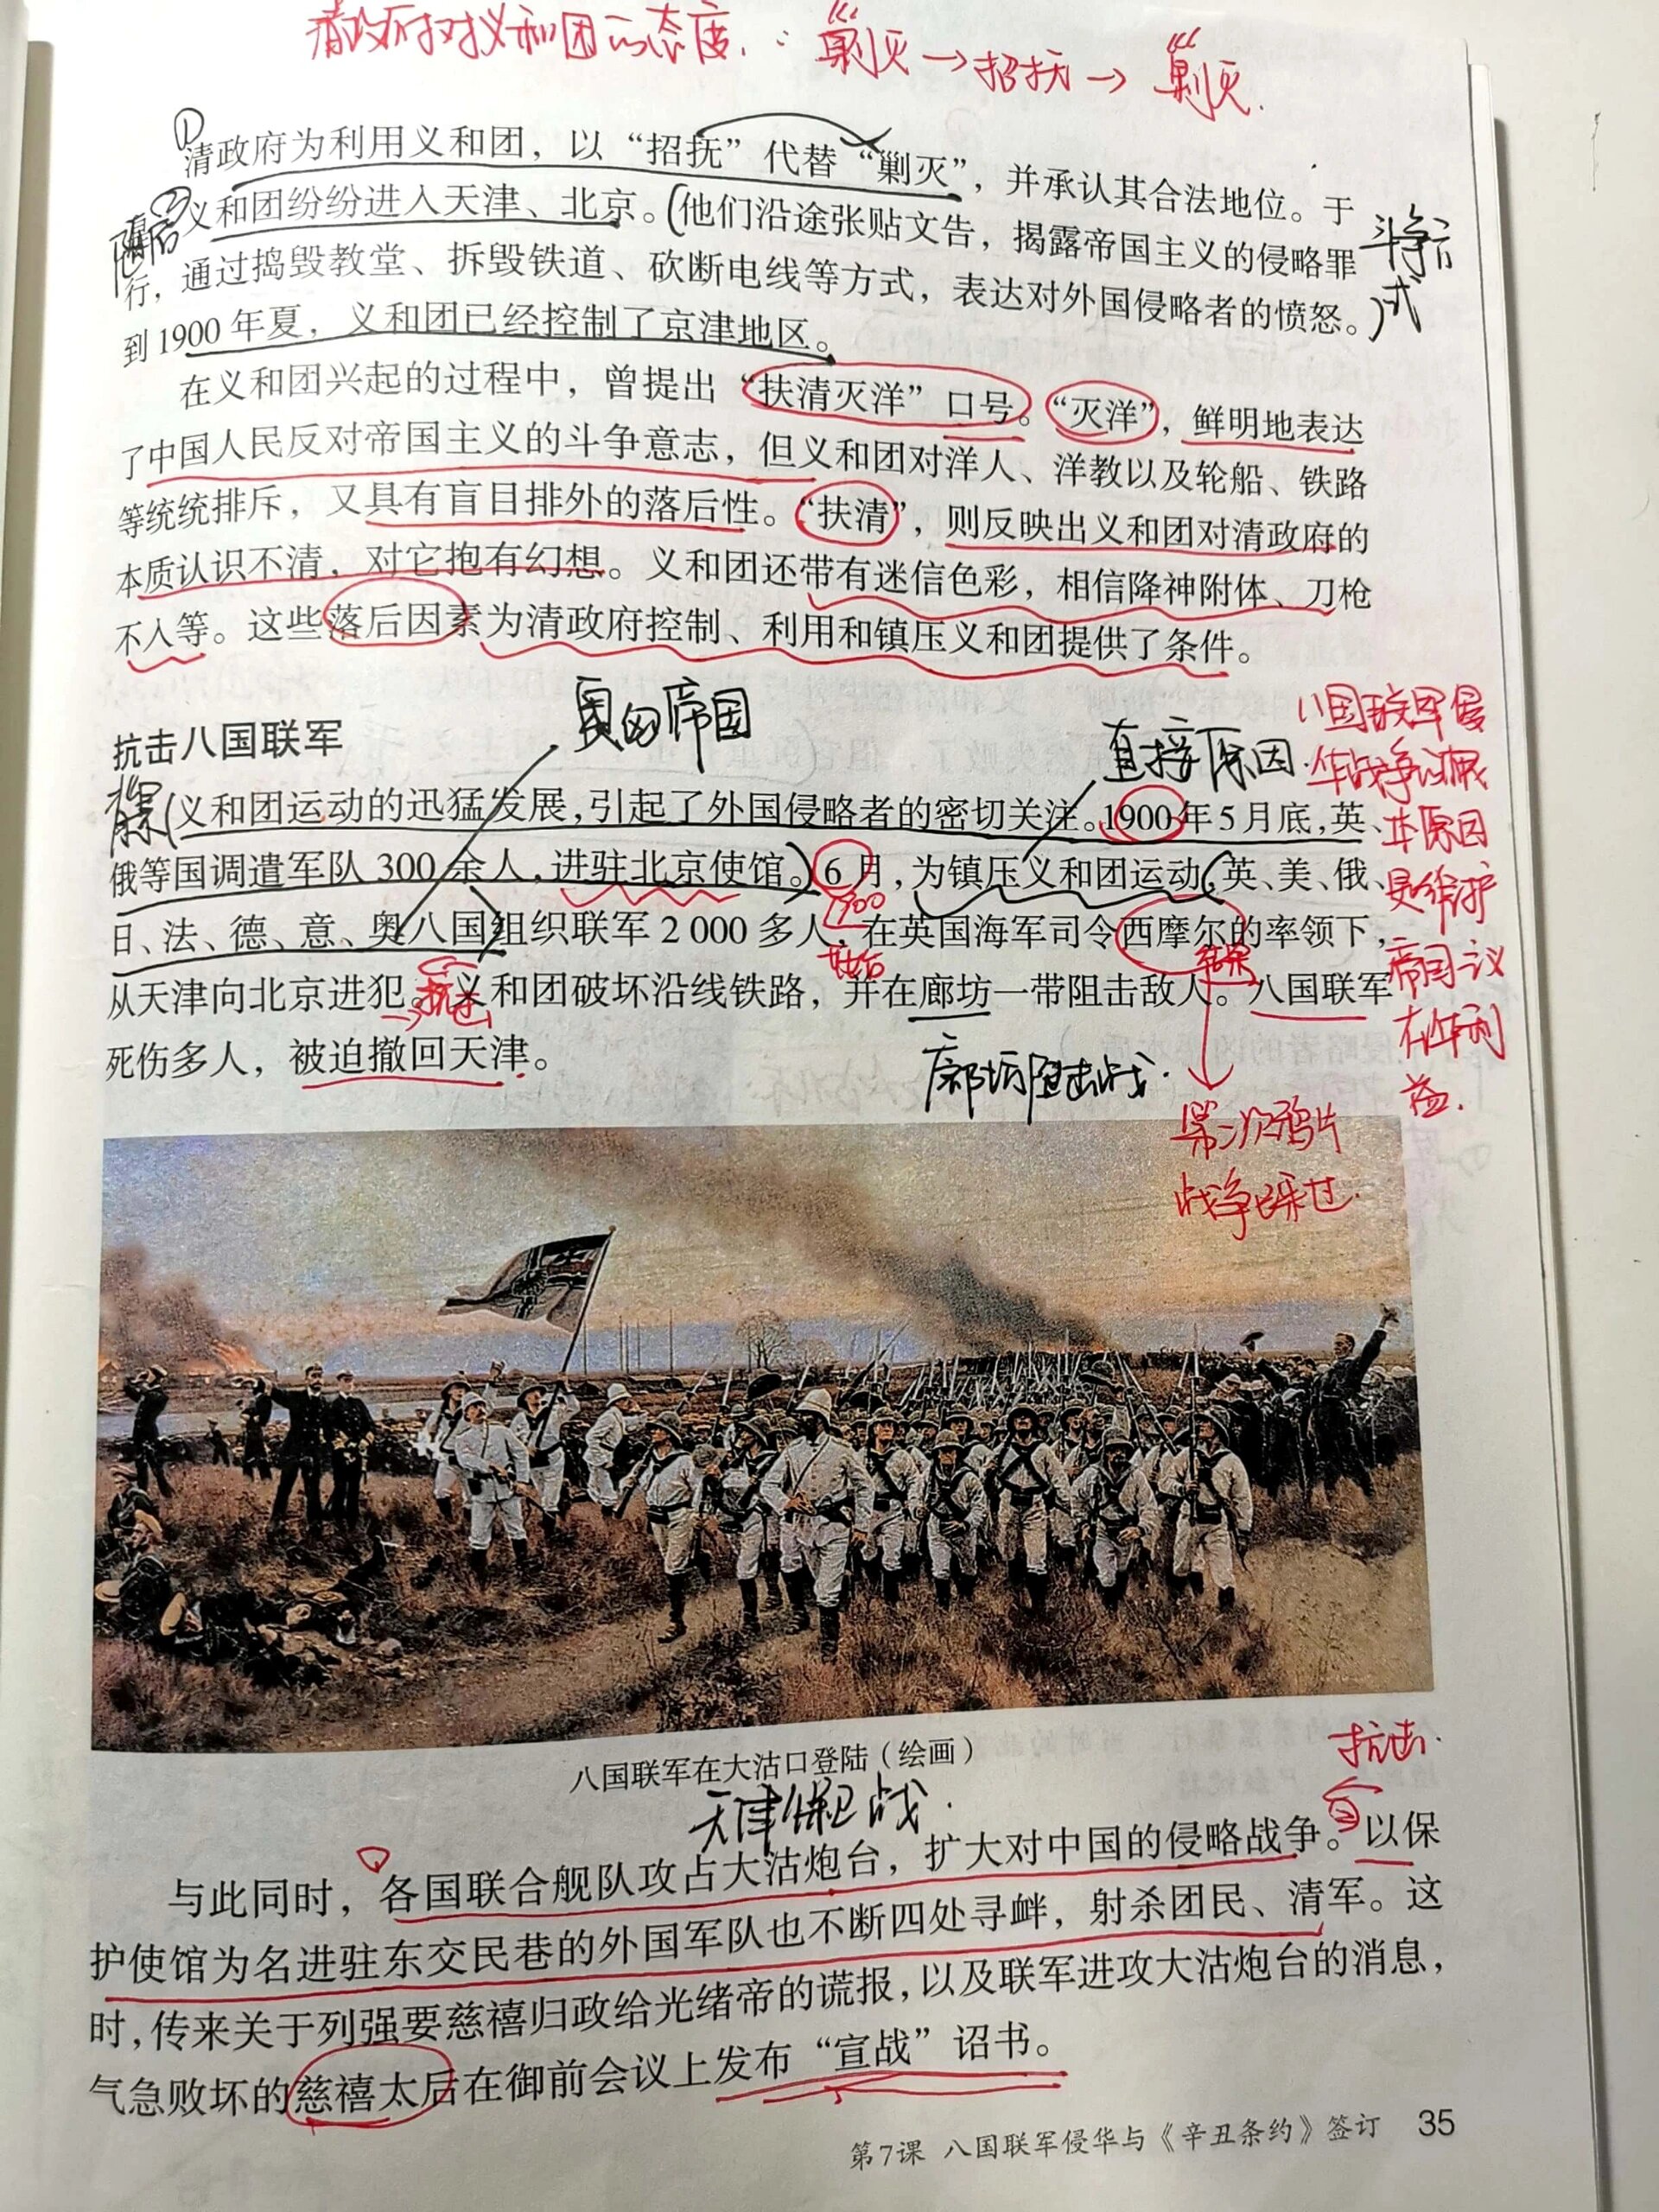 清政府对义和团的态度：剿灭→招抚→剿灭.
①
清政府为利用义和团，以“招抚”代替“剿灭”，并承认其合法地位。于
②义和团纷纷进入天津、北京。(他们沿途张贴文告，揭露帝国主义的侵略罪
行，通过捣毁教堂、拆毁铁道、砍断电线等方式，表达对外国侵略者的愤怒。)
斗争方式
到1900年夏，义和团已经控制了京津地区。
在义和团兴起的过程中，曾提出“扶清灭洋”口号。“灭洋”，鲜明地表达
了中国人民反对帝国主义的斗争意志，但义和团对洋人、洋教以及轮船、铁路
等统统排斥，又具有盲目排外的落后性。“扶清”，则反映出义和团对清政府的
本质认识不清，对它抱有幻想。义和团还带有迷信色彩，相信降神附体、刀枪
不入等。这些落后因素为清政府控制、利用和镇压义和团提供了条件。
奥匈帝国
抗击八国联军
直接原因.
背景
(义和团运动的迅猛发展，引起了外国侵略者的密切关注。1900年5月底，英、
俄等国调遣军队300余人，进驻北京使馆。)6月，为镇压义和团运动(英、美、俄、
1900
日、法、德、意、奥八国组织联军2 000多人，在英国海军司令西摩尔的率领下，
开始
结果
从天津向北京进犯。义和团破坏沿线铁路，并在廊坊一带阻击敌人。八国联军
→抗击
死伤多人，被迫撤回天津。
廊坊阻击战.
八国联军侵
华战争
本原因
是维护
帝国议
在华利
益.
第二次鸦片
战争 来过.
八国联军在大沽口登陆（绘画）
天津保卫战.
抗击.
与此同时，各国联合舰队攻占大沽炮台，扩大对中国的侵略战争。以保
护使馆为名进驻东交民巷的外国军队也不断四处寻衅，射杀团民、清军。这
时，传来关于列强要慈禧归政给光绪帝的谎报，以及联军进攻大沽炮台的消息，
气急败坏的慈禧太后在御前会议上发布“宣战”诏书。
第7课 八国联军侵华与《辛丑条约》签订 35